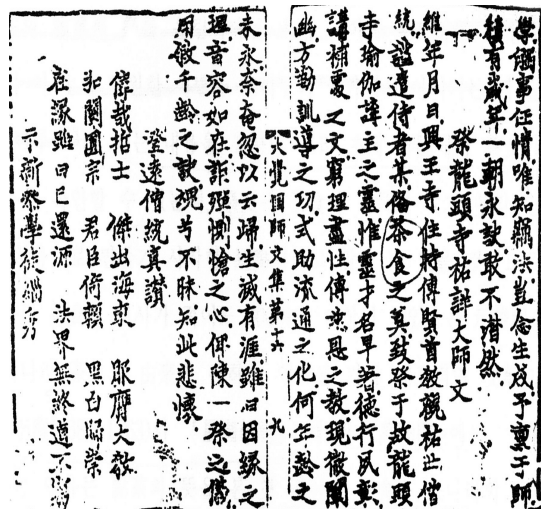 學事任情唯知顯法豈念生成予稟于師
積有歲年一朝永訣敢不潸然
祭龍頭寺祐詳大師文
維年月日興王寺住持傳賢首教觀祐世僧
統謹遣侍者某俻茶食之奠致祭于故龍頭
寺瑜伽講主之靈惟靈才名早著德行民彰
講補處之文窮理盡性傳慈恩之教現微闡
幽方勤訓導之功式助流通之化何年齡之
大覺國師文集第十六 九
未永奈奄忽以云歸生滅有涯雖曰因緣之
理音容如在詎殫惻愴之心俾陳一祭之儀
用敘千齡之訣魂兮不昧知此悲懷
瑩遠僧統真讚
偉哉哲士 傑出海東 服膺大教
弘闡圓宗 君臣倚賴 黑白歸崇
緣跡已還源 法界無終
示新參學徒緇秀